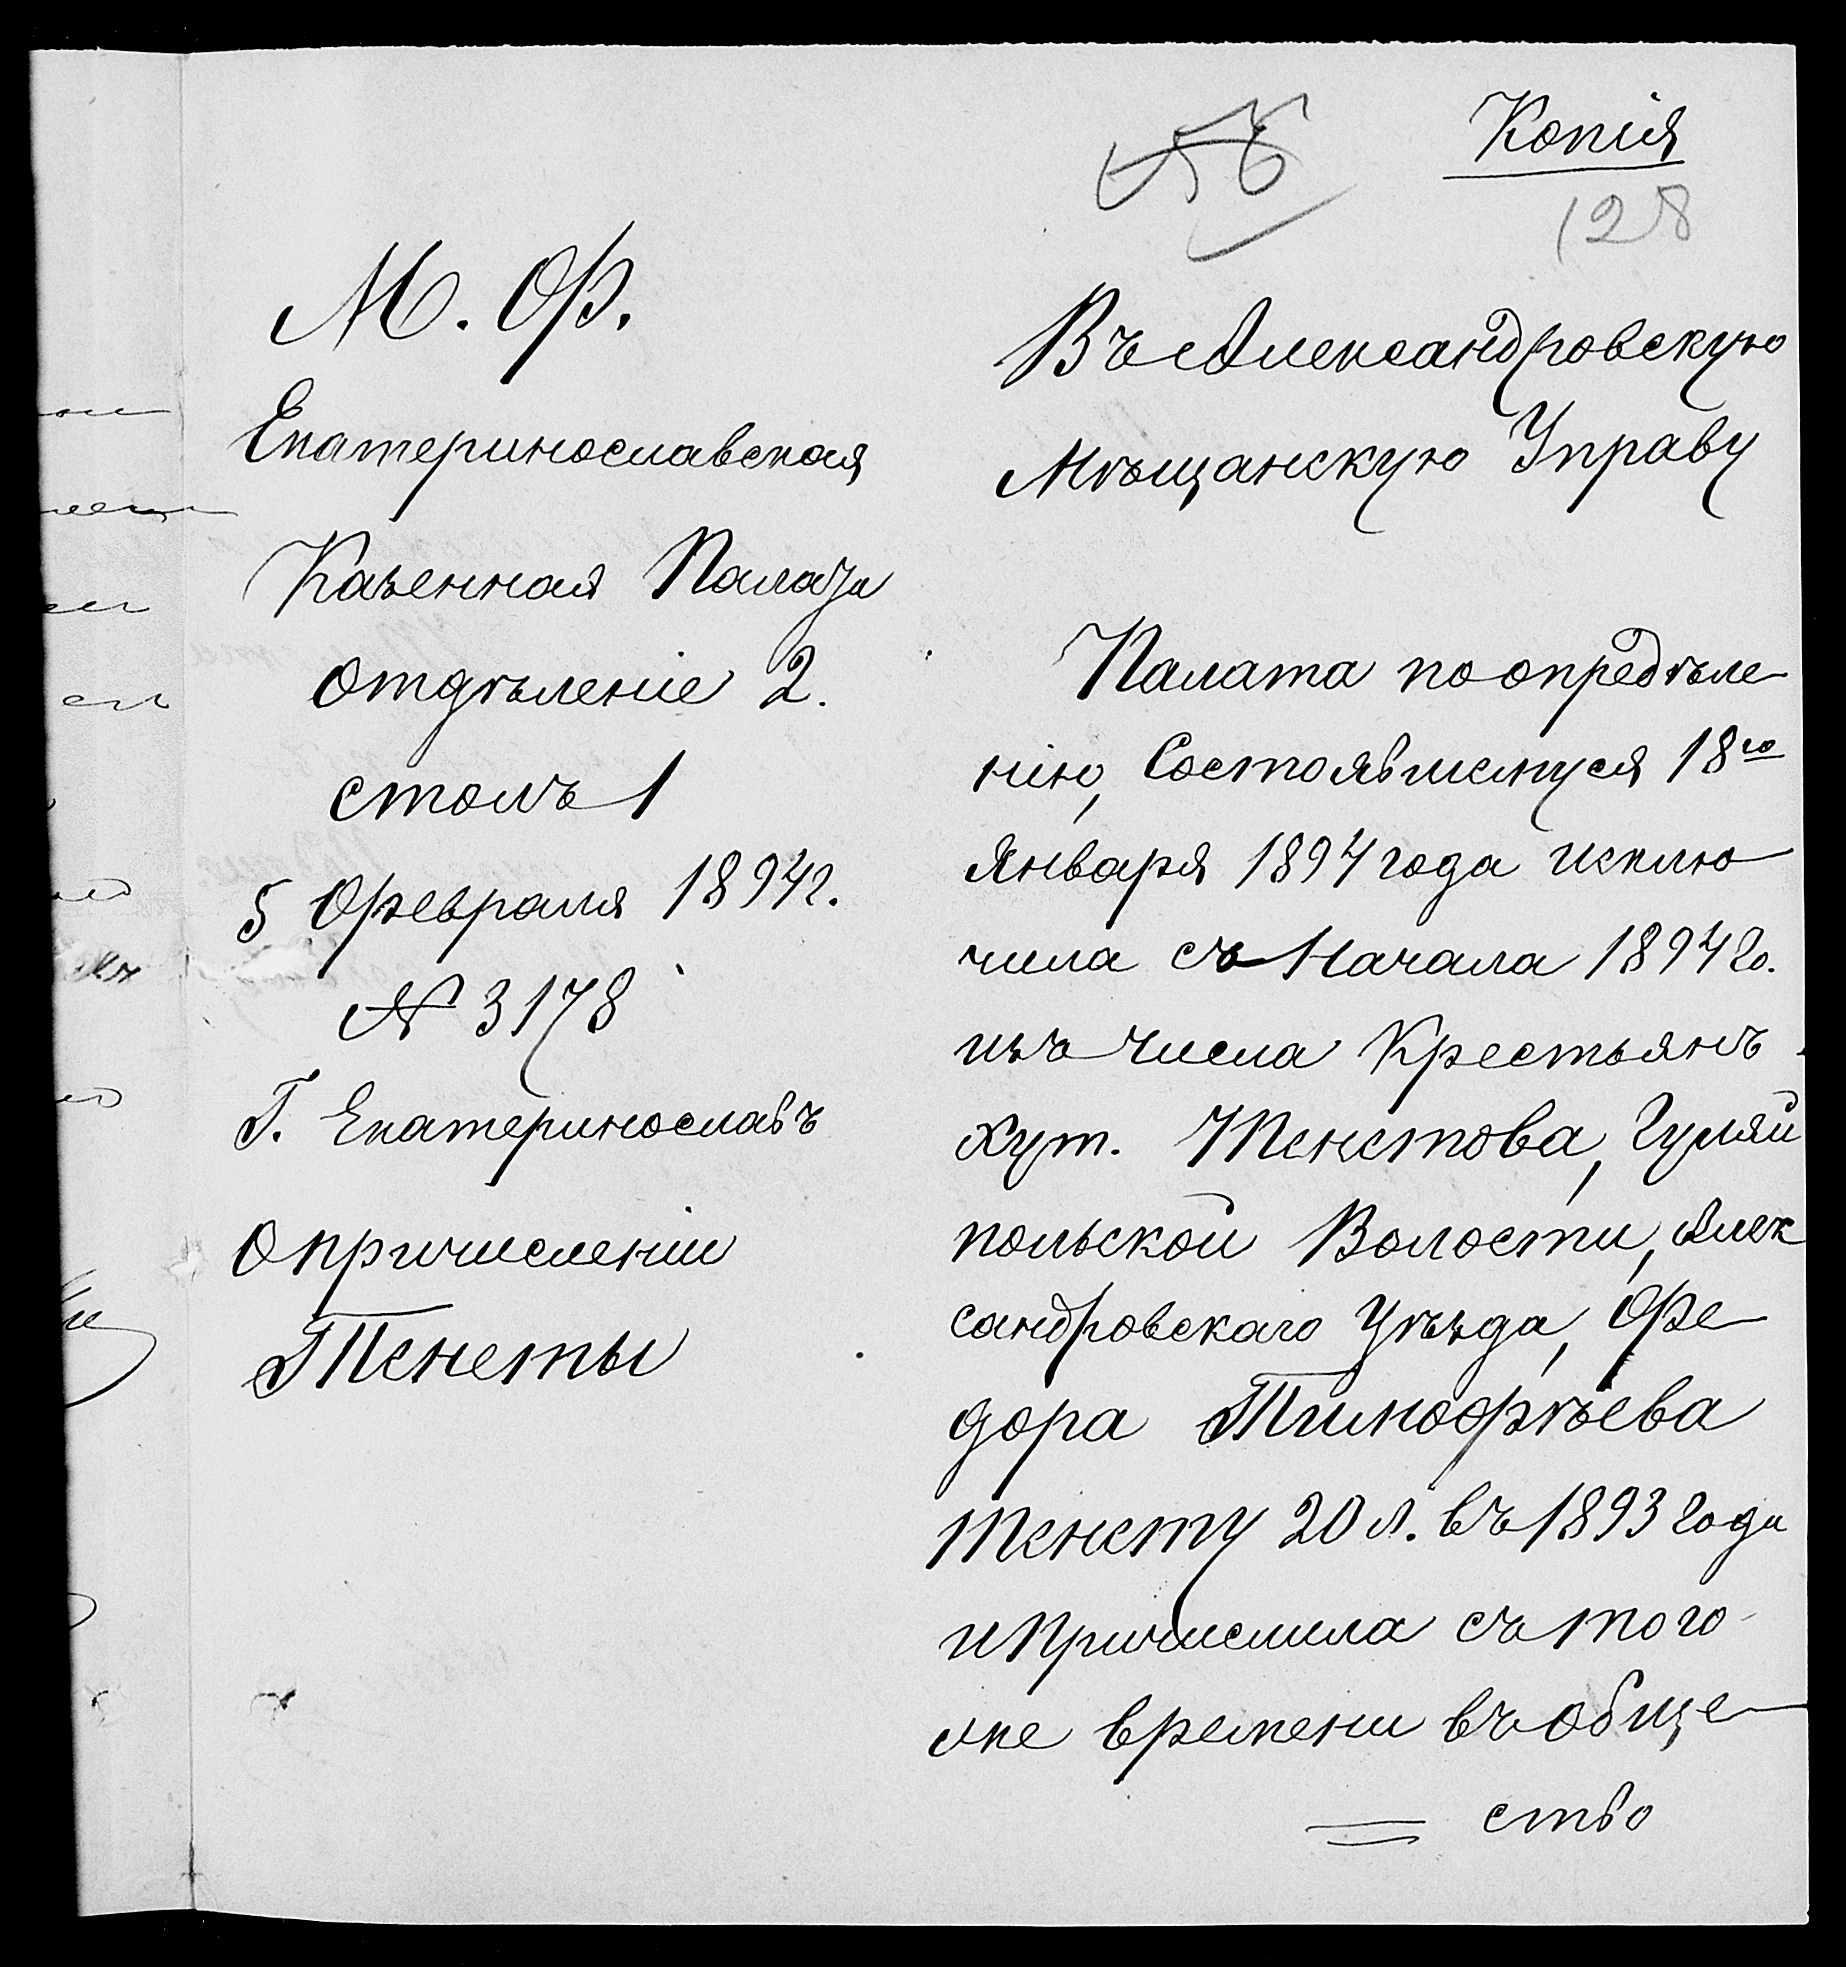 Копія
128
М. Ф.
Екатеринославская
Казенная Палата
отдѣленіе 2.
столъ 1
5 Февраля 1894 г.
№ 3178
Г. Екатеринославъ
О причисленіи
Тенеты
Въ Александровскую
Мѣщанскую Управу
Палата по опредѣле
нію, Состоявшемуся 18го
Января 1894 года исклю
чила съ Начала 1894 го.
изъ числа Крестьянъ
хут. Тенетова, Гуляй
польской Волости, Алек
сандровскаго Уѣзда, Фе
дора Тимофѣева
Тенету 20 л. въ 1893 году
и причислила съ того
же времени въ обще
ство